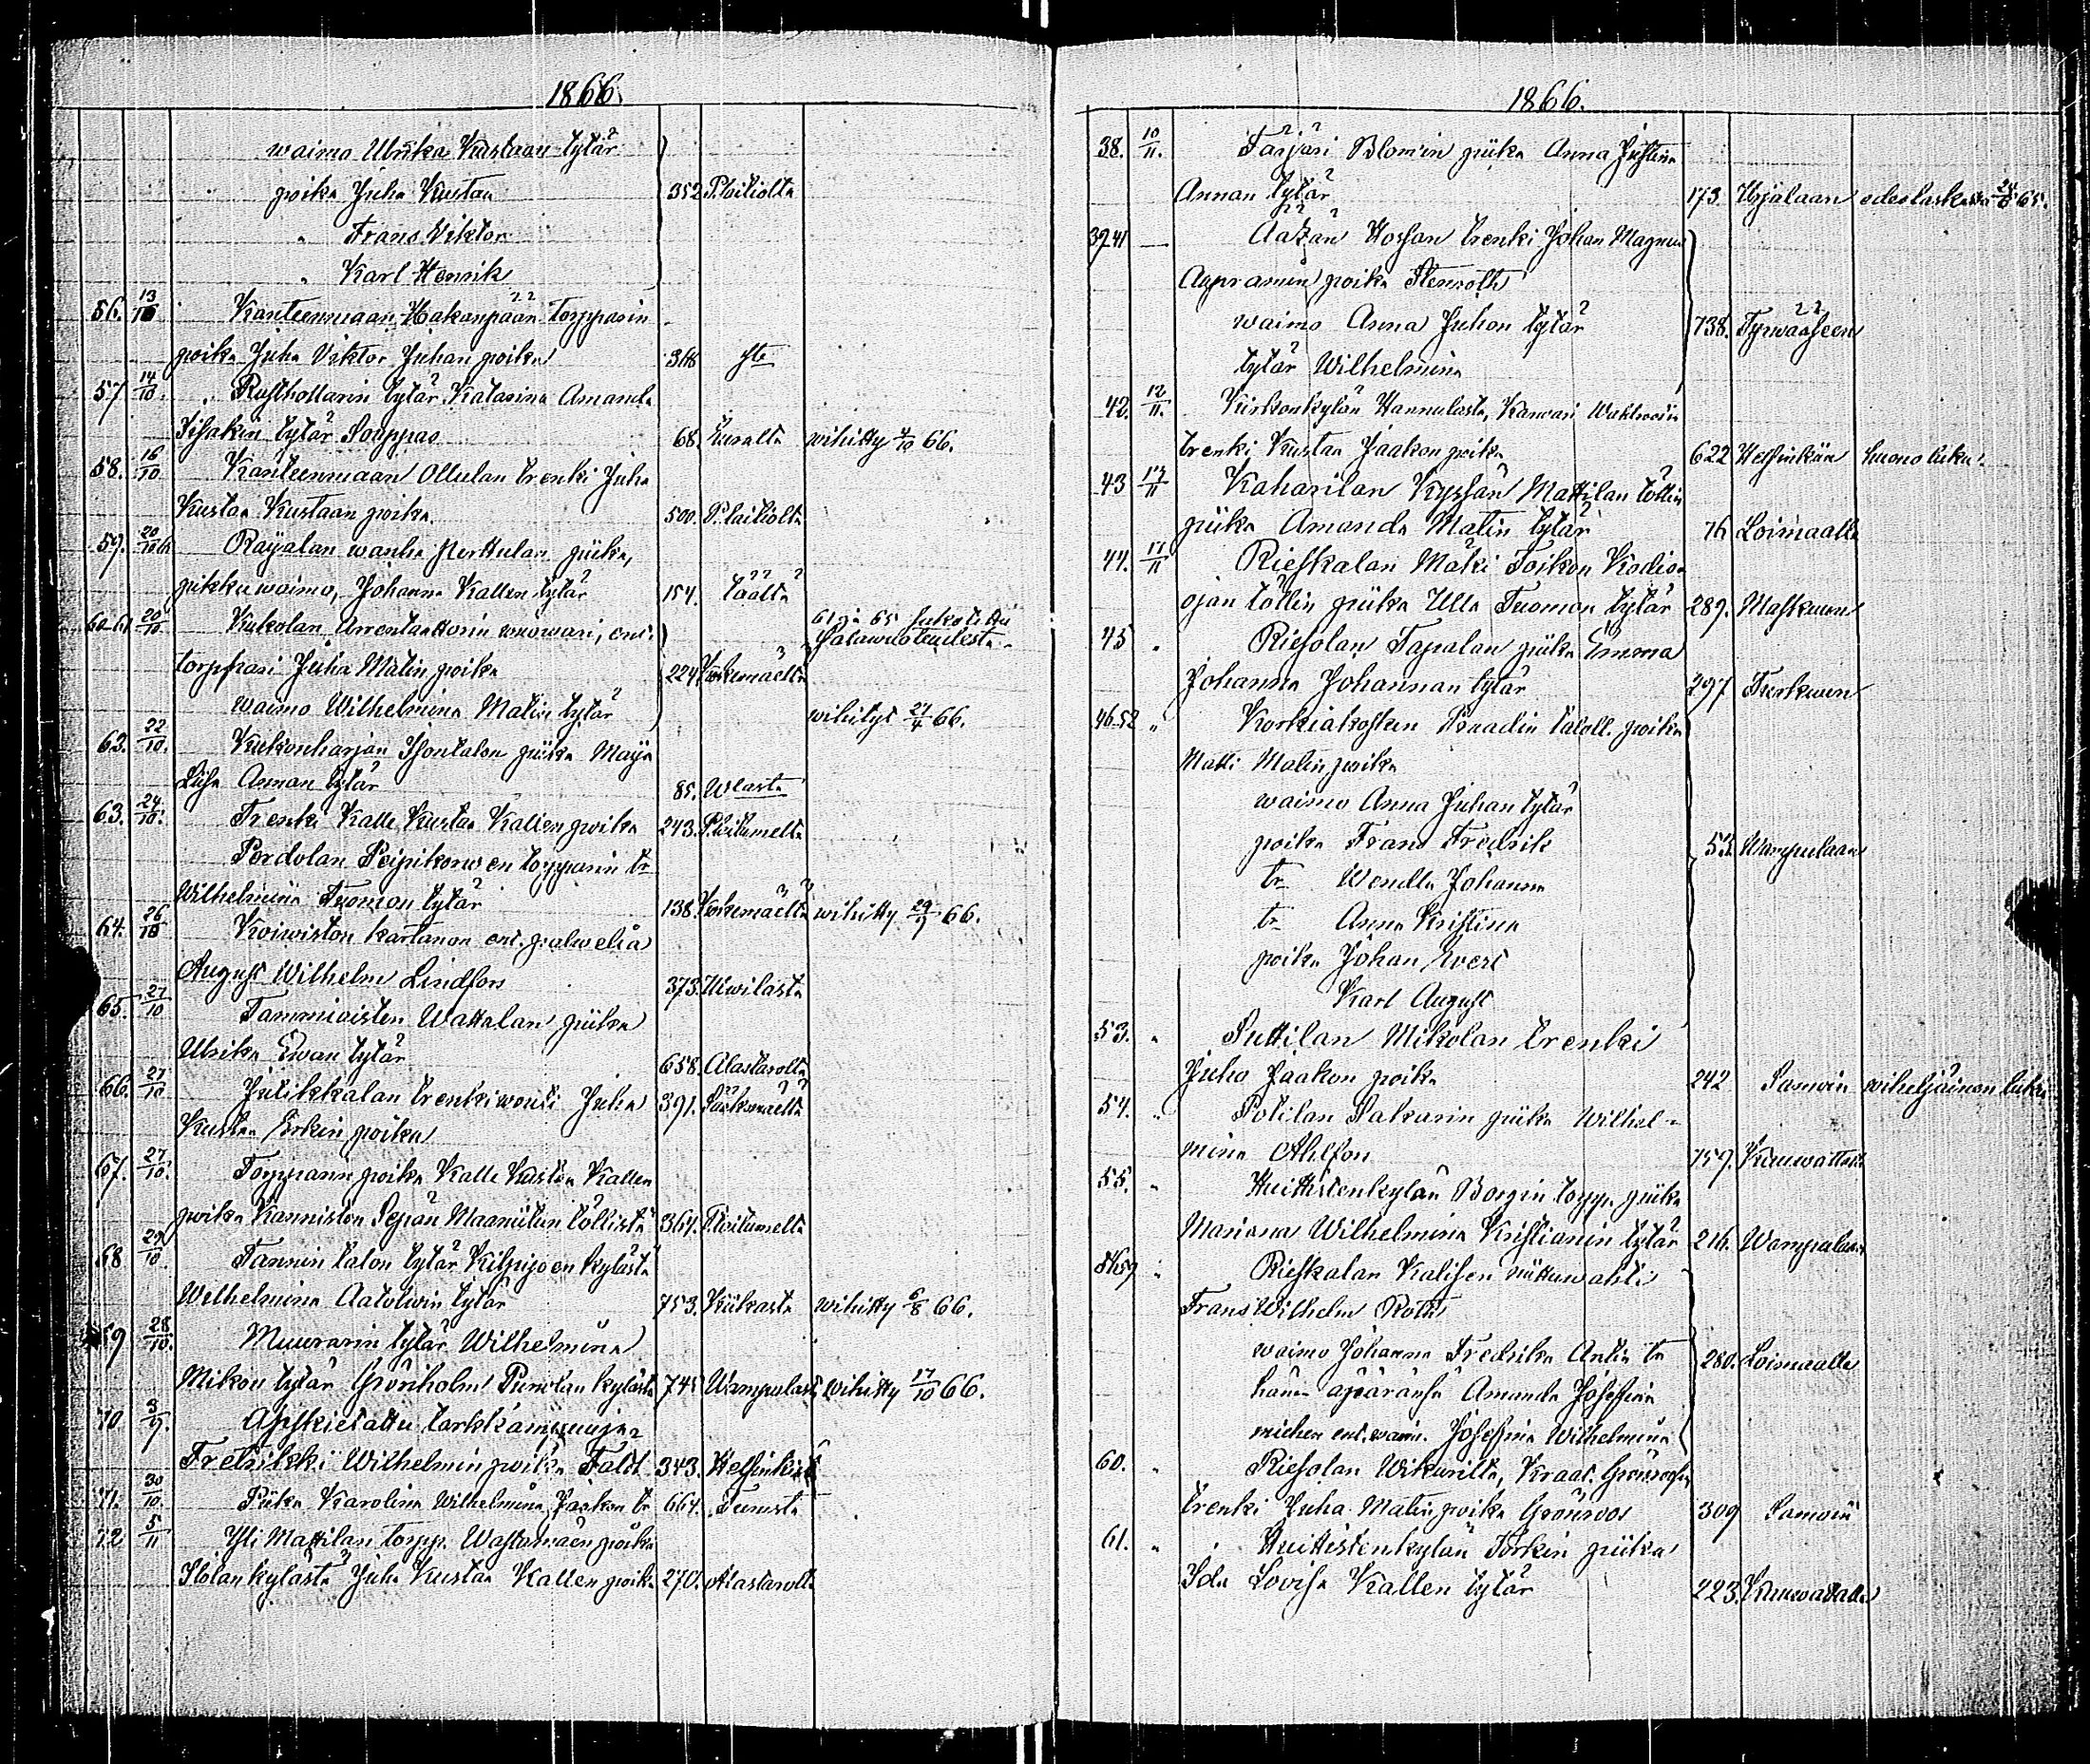 1866.
waimo Ulrika Kustaan tytär
poika Juha Kustaa 352 P.loitiolta
" Frans Viktor
" Karl Henrik
56. 13/10 Kanteenmaan Hakanpään Torpparin
poika Juha Viktor Juhan poika 368
57 14/10 Rusthollarin tytär Katarina Amanda
Isakin tytär Souppas 68 Eurasta wihitty 66.
58. 16/10 Kanteenmaan Ollulan trenki Juha
Kustaa Kustaan poika. 500.
59. 20/10 Raijalan wanha Perttulan piika,
pikkuwaimo, Johanna Kallen tytär 154. täältä
60-61 20/10 Kukolan Arrentaattorin ent.
61 ja 65
torppari Juha Matin poika 224 Kokemäeltä
waimo Wilhelmina Matin tytär wihityt 27/4 66.
62. 22/10. Kukonharjan Isontalon piika Maija
Liisa Annan tytär 85.
63. 24/10. Trenki Kalle Kustaa Kallen poika 243. P.loitumelta
Perdolan Peipikorwen torpparin tr
Wilhelmina Tuomon tytär 138 Kokemäeltä wihitty 29/9 66.
64. 26/10 Koiwiston kartanon ent. palwelia
August Wilhelm Lindfors 373. Ulwilasta
65. 27/10 Tammiaisten Wattalan piika
Ulrika Ewan tytär 658. Alastarolta
66. 27/10 Jutikkalan trenkiwouti Juha 391. Sääksmäeltä
Kustaa Erkin poika
67. 27/10. Torpparin poika Kalle Kustaa Kallen
poika Kanniston Sepän Maaniitun töllistä 364. P.loitumelta
68 27/10. Tannin talon tytär Kiljujoen kylästä
Wilhelmina Aatolwin tytär 753. Kiikasta wihitty 6/8 66.
69 28/10. Muurarin tytär Wilhelmina
Mikon tytär Grönholm Punolan kylästä 745 Wampulasta wihitty 17/10 66.
70 3/9. Apskiedattu tarkkampuuja
Fredrikki Wilhelmin poika Faldt 343. Helsinkistä
71. 30/10. Piika Karolina Wilhelmina Jaakon tr 664. Turusta
72 5/11 Yli Mattilan torpp. Wastamäen poika
Slolan kylästä Juha Kustaa Kallen poika 270. Alastarolta
1866.
38. 10/11. Färjäri Blomin piika Anna Justina
Annan tytär 173. Urjalaan edeslaskettu 65.
39.41 — Äätzän Hossan trenki Johan Magnus
Aapramin poika Stenroth
waimo Anna Juhon tytär 738. Tyrwääseen
tytär Wilhelmina
42. 12/11. Kirkonkylän Hannulasta, Kanwari Wahlroosin
trenki Kustaa Jaakon poika 622 Helsinkiin huono luku.
43 17/11 Kaharilan Kyssän Mattilan töllin
piika Amanda Matin tytär 76 Loimaalle
44. 17/11 Rieskalan Mäki Toikon Kodis-
ojan töllin piika Ulla Tuomon tytär 289. Maskuun
45 " Riesolan Tapalan piika Emma
Johanna Johannan tytär 297 Turkuun
46-52 " Korkiakosken Knaadin taloll. poika
Matti Matin poika
waimo Anna Juhan tytär
poika Frans Fredrik 53. Wampulaan
tr Wendla Johanna
tr Anna Kristina
poika Johan Evert
Karl August
53. " Suttilan Mikolan trenki
Juho Jaakon poika 242 Samoin wiheljäinen luku
54. " Potilan Sakarin piika Wilhel-
mina Ahlfon 759. Kauwattalle
55. " Huittistenkylän Borgin torpp. piika
Mariana Wilhelmina Kristianin tytär 216. Wampulaan
56-59 " Rieskalan Kalisen niittuwahti
Frans Wilhelm Roth
waimo Johanna Fredrika Antin tr 280. Loimaalle
hänen äpäränsä Amanda Josefina
miehen ent. waim. Josefina Wilhelmina
60. " Riesolan Wikarilta, Kraat. Grönroosin
trenki Juha Matin poika Grönroos 309 Samoin
61. " Huittistenkylän Torkin piika
Ida Lovisa Kallen tytär 223. Kauwatalle